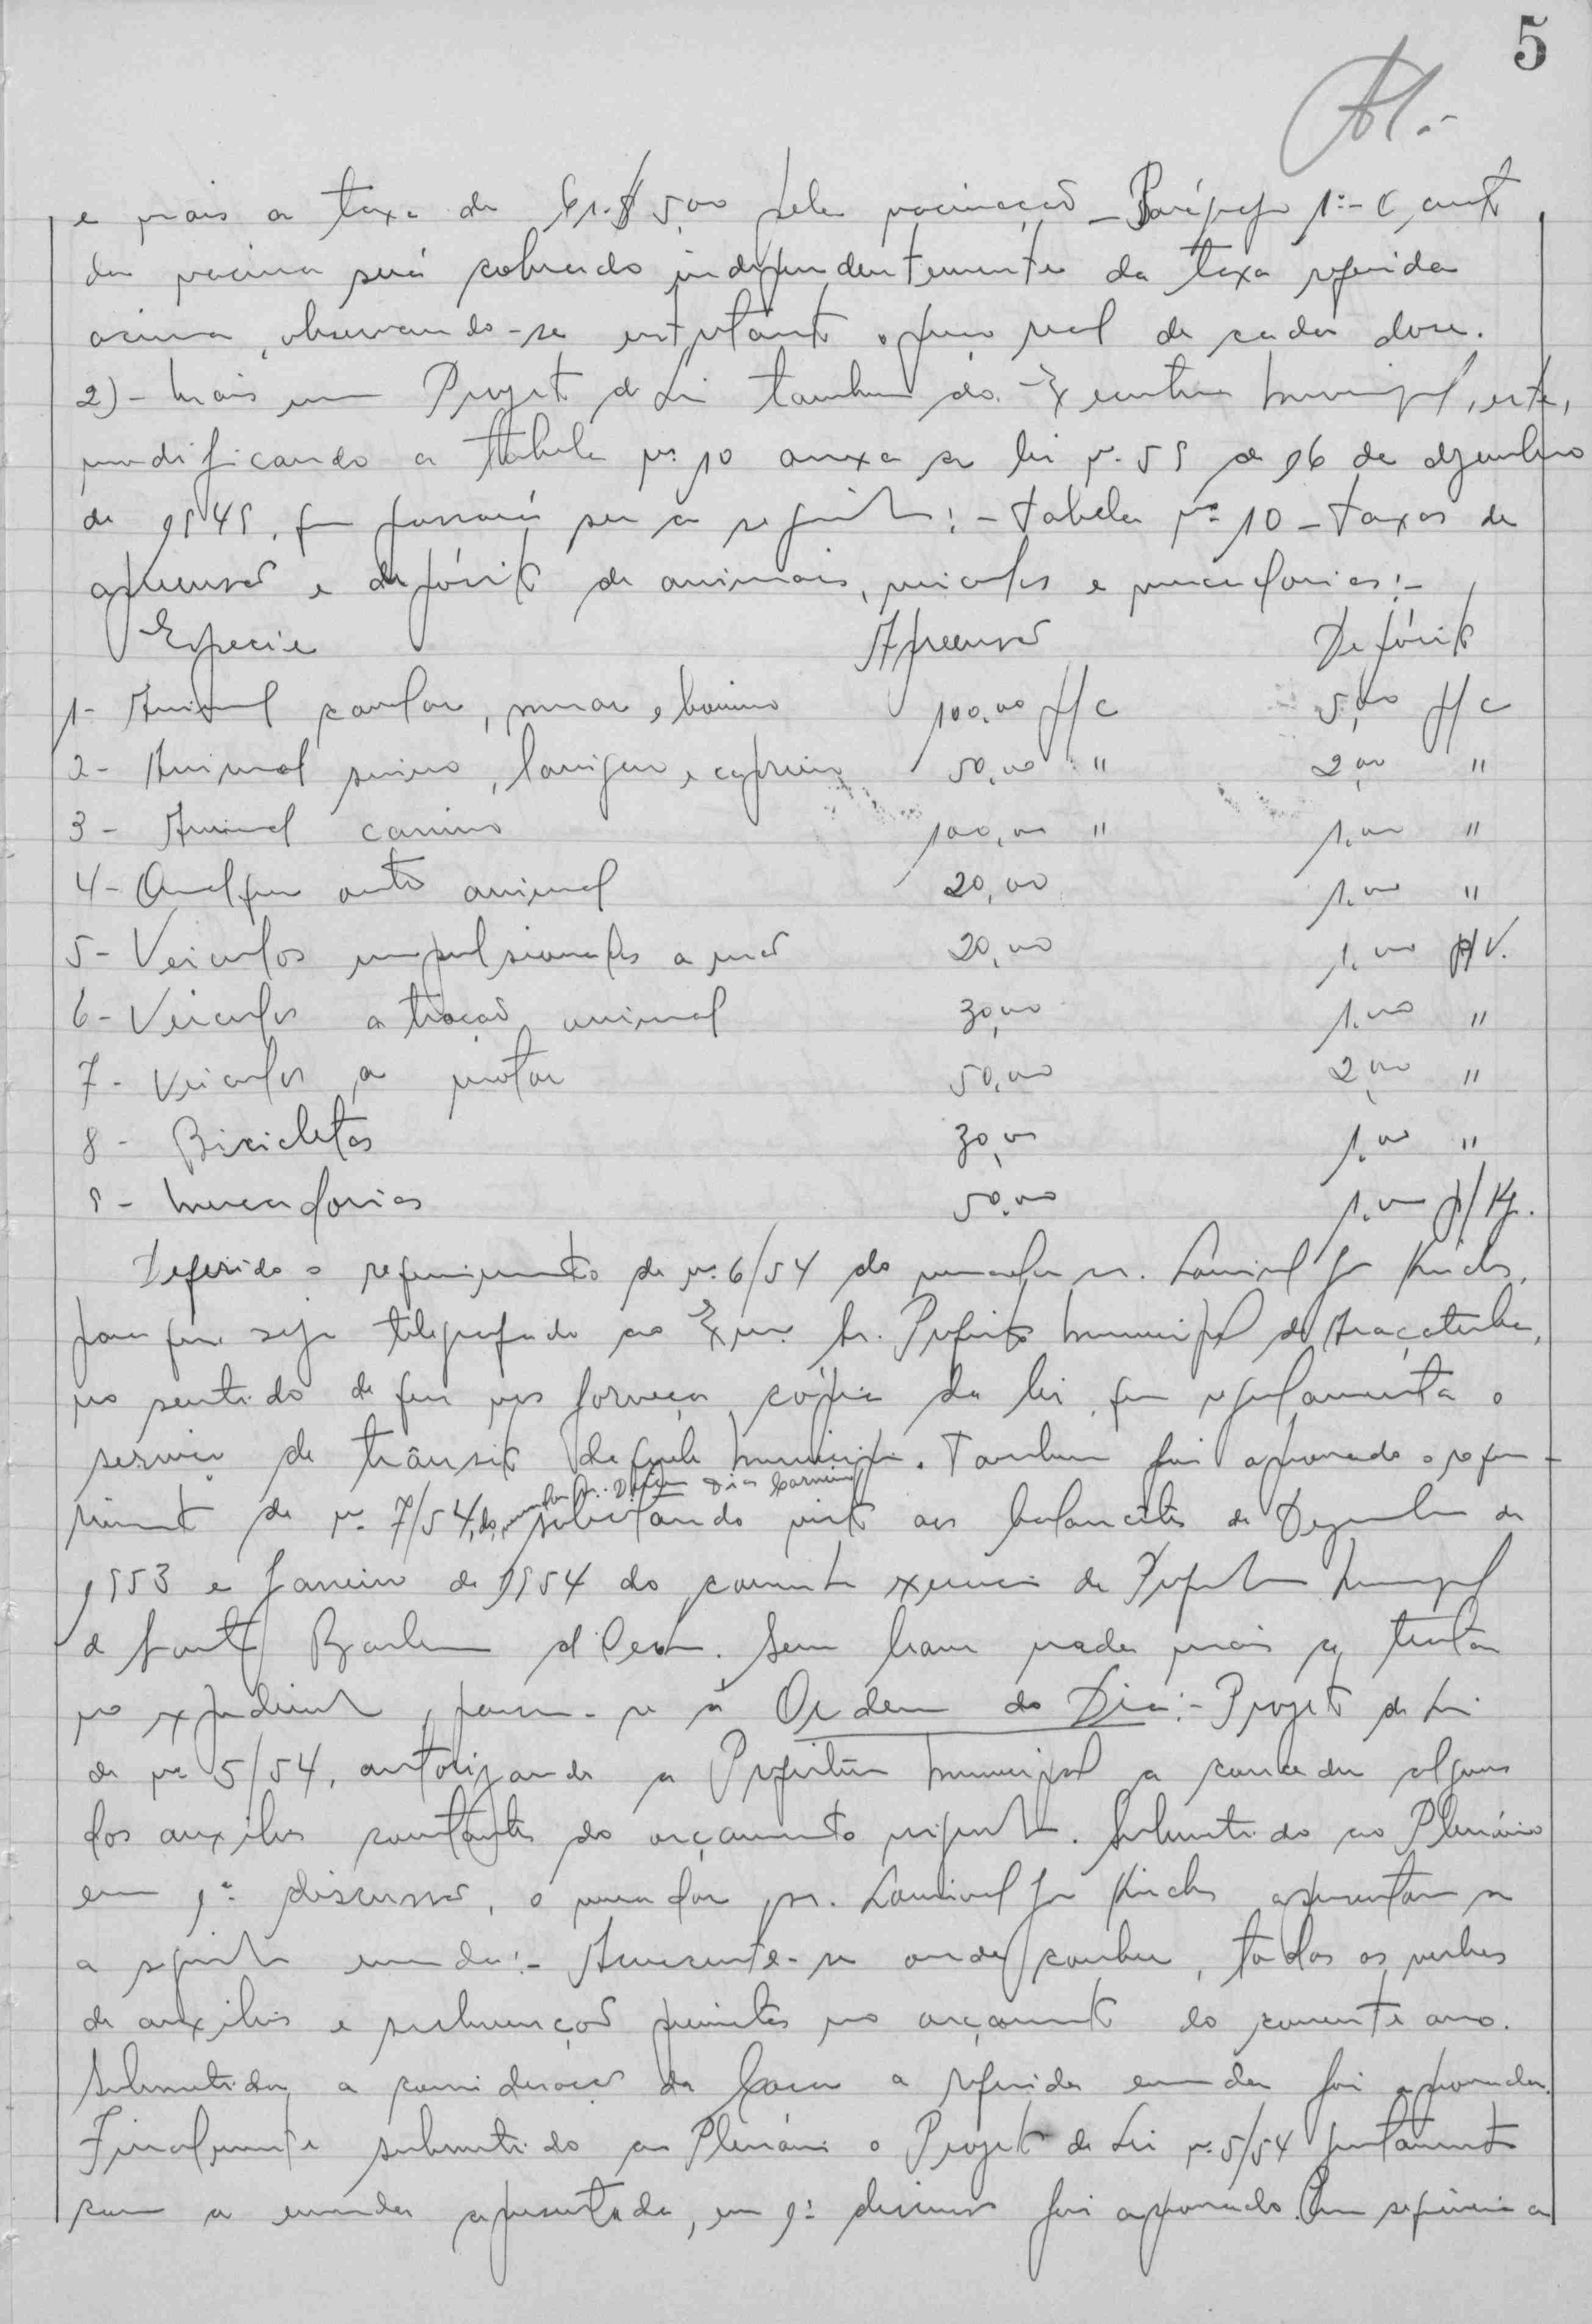 5
e mais a taxa de Cr.$ 5,00 pela vacinação - Parágrafo 1º - O cust
da vacina será cobrado independentemente da taxa referida
acima, observando-se entretanto o preço real de cada dose.
2) - Mais um Projeto de Lei tambem do Executivo Municipal, este,
modificando a tabela nº 10 anexa a lei nº 59 de 16 de dezembro
de 1949, que passará ser a seguinte: - Tabela nº 10 - Taxas de
apreensão e depósito de animais, veiculos e mercadorias: -
Especie Apreensão Depósito
1- Animal cavalar, muar e bovino 100,00 p/c 5,00 p/c
2- Animal suino, lanigero e caprino 50,00 " 2,00 "
3- Animal canino 100,00 " 1,00 "
4- Qualquer outro animal 20,00 1,00 "
5- Veiculos impulsionados a mão 20,00 1,00 p/V.
6- Veiculos a tração animal 30,00 1,00 "
7- Veiculos a motor 50,00 2,00 "
8- Bicicletas 30,00 1,00 "
9- Mercadorias 50,00 1,00 p/Kg.
Deferido o requerimento de nº 6/54 do vereador sr.
para que seja telegrafado ao Exmo. Sr. Prefeito Municipal de Araçatuba,
no sentido de que nos forneça cópia da lei que regulamenta o
serviço de trânsito daquele municipio. Tambem foi aprovado o reque-
rimento de nº 7/54, do vereador sr. Dias Carneiro, solicitando visto aos balancetes de Dezembro de
1953 e Janeiro de 1954 do corrente exercicio da Prefeitura Municipal
de Santa Barbara d'Oeste. Sem haver nada mais a tratar
no expediente, passou-se à Ordem do Dia: - Projeto de Lei
de nº 5/54, autorizando a Prefeitura Municipal a conceder alguns
dos auxilios constantes do orçamento vigente. Submetido ao Plenário
em 1ª discussão, o vereador sr. apresentou
a seguinte emenda: - Acrescente-se onde couber, todas as verbas
de auxilios e subvenções previstas no orçamento do corrente ano.
Submetida a consideração da Casa a referida emenda foi aprovada.
Finalmente submetido ao Plenário o Projeto de Lei nº 5/54 juntamente
com a emenda apresentada, em 1ª discussão foi aprovado. Em sequencia a